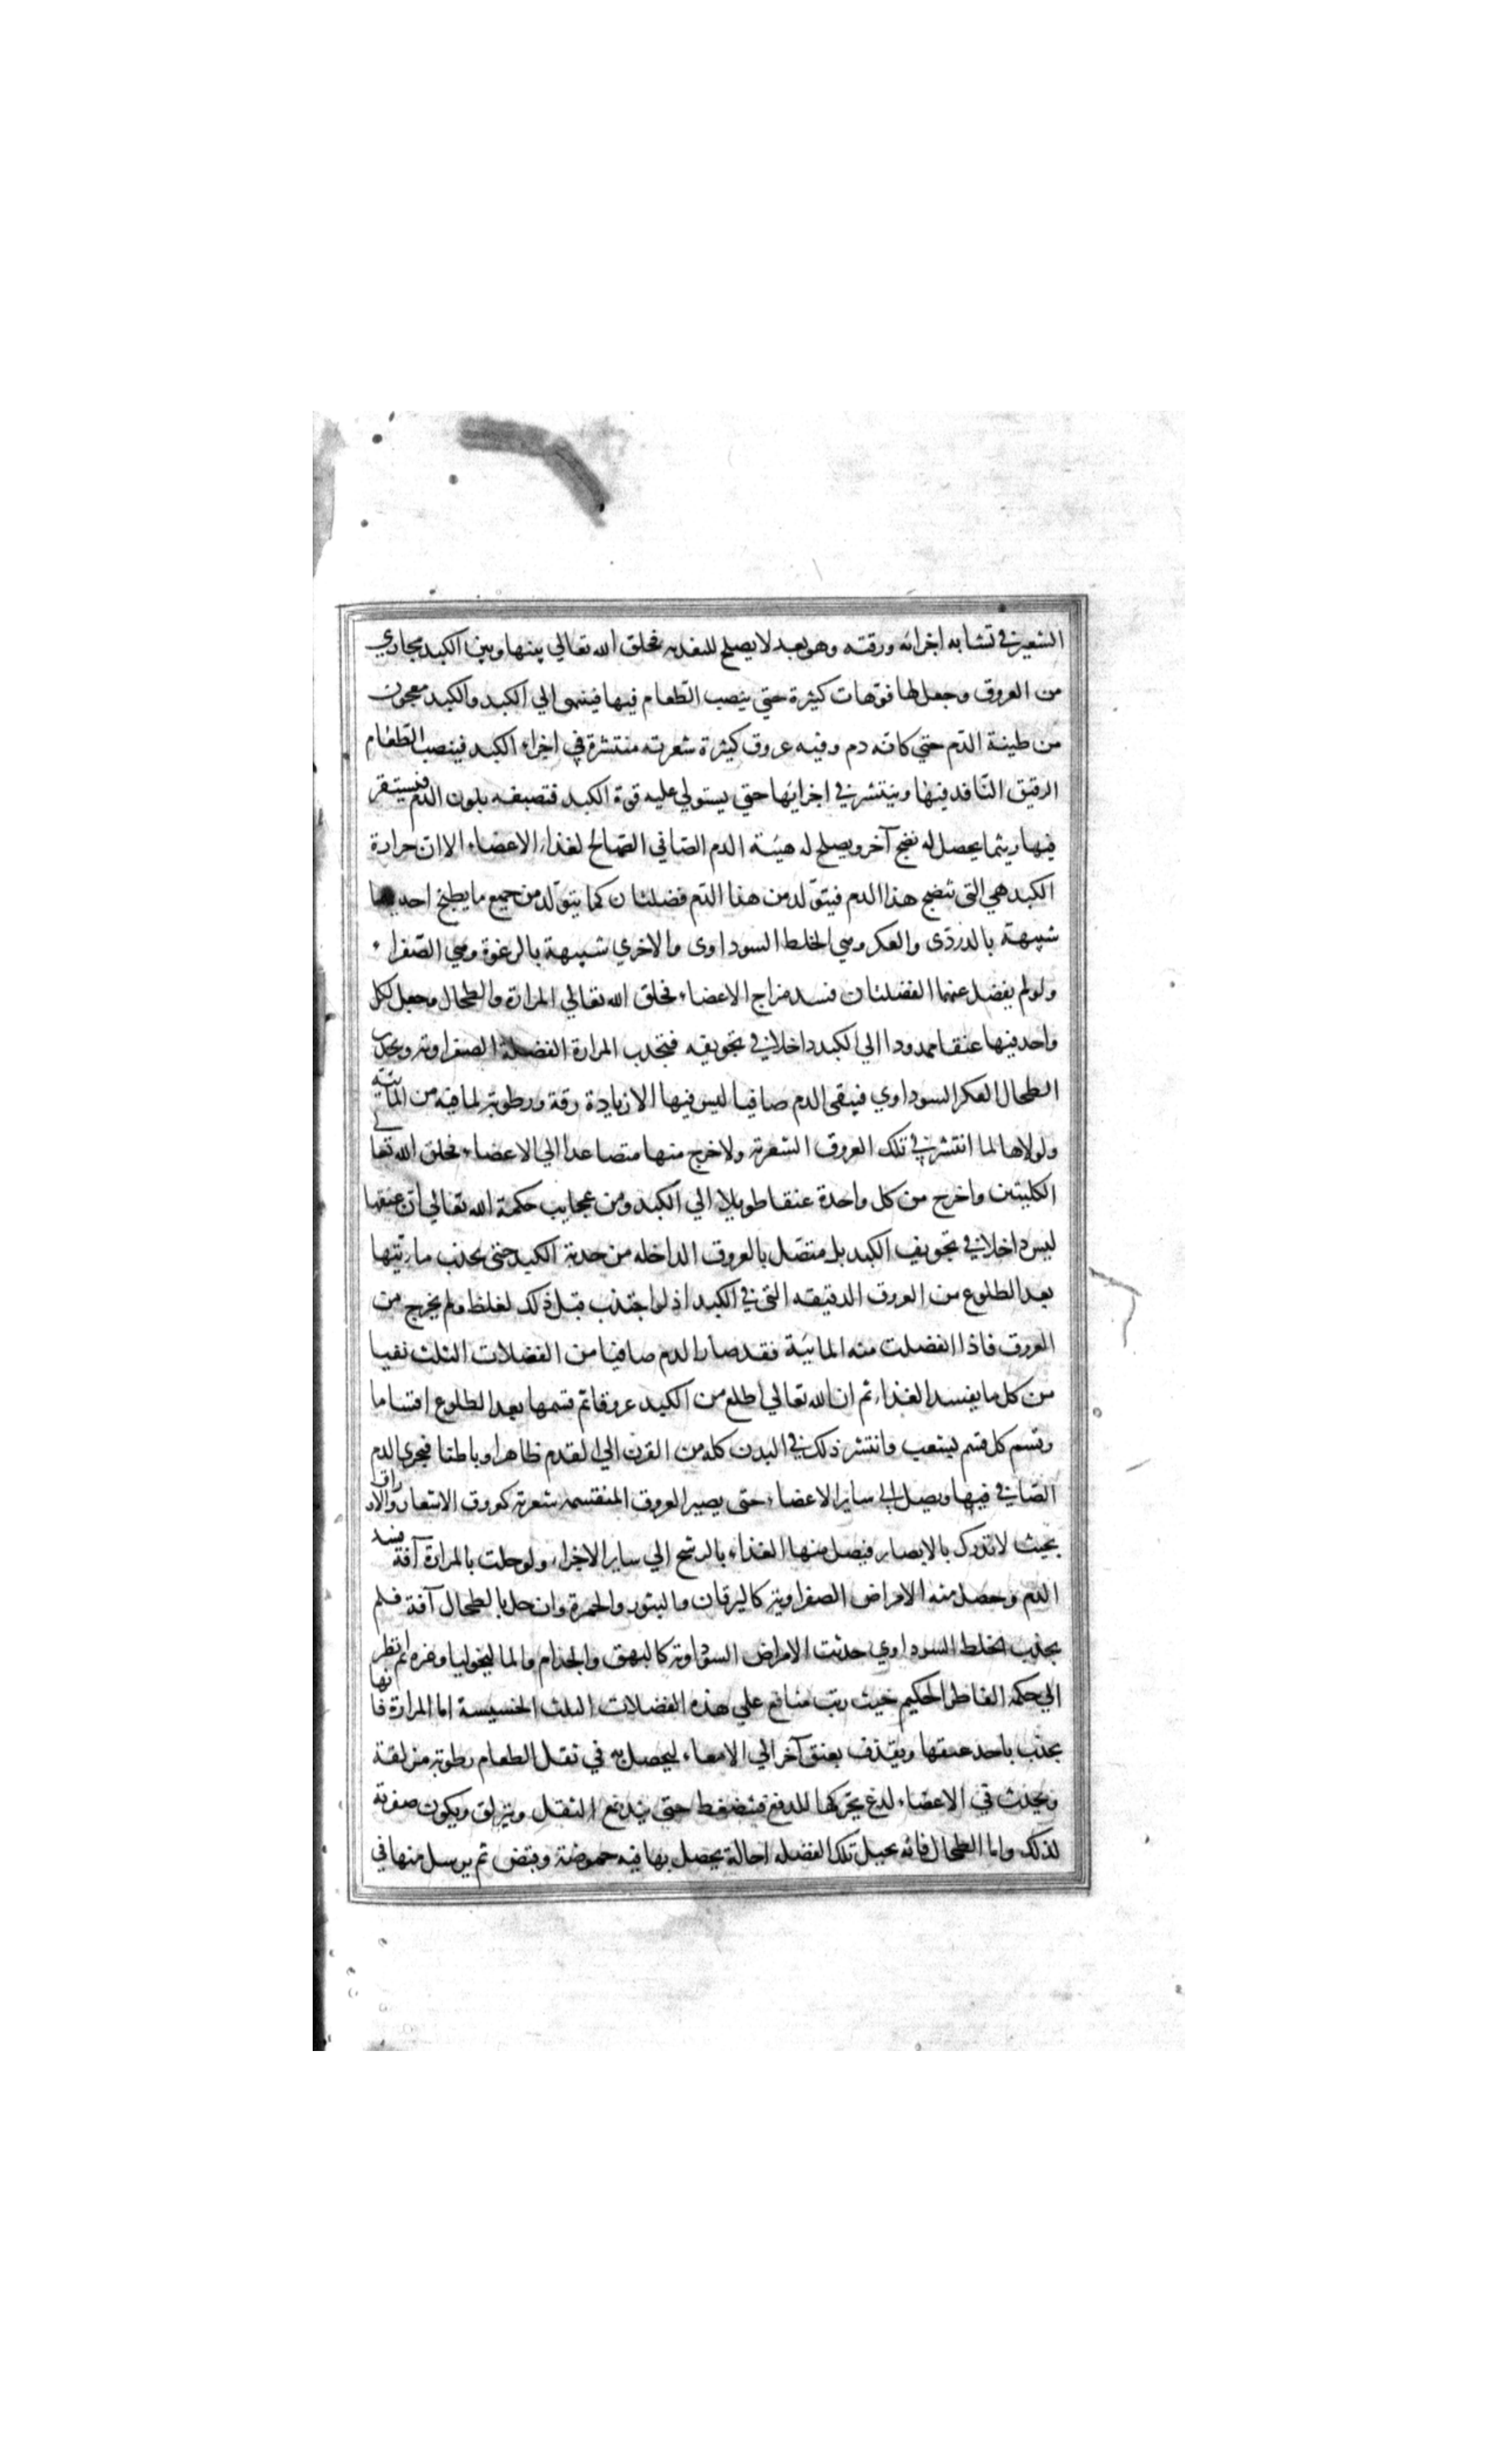 الشعير في تشابه اجزائه ورقته وهو بعد لا يصلح للتغذيه فخلق الله تعالي بينها وبين الكبد مجاري
من العروق وجعل لها فوّهات كثيرة حتي ينصب الطعام فيها فينتهى الي الكبد والكبد معجون
من طينة الدّم حتي كانّه دم وفيه عروق كثيرة شعريه منتشرة في اجزاء الكبد فينصب الطعام
الرقيق النّافد فيها وينتشر في اجزايها حتي يستولي عليه قوة الكبد فتصبغه بلون الدم فيستقر
فيها ريثما يحصل له نضج آخر ويصلح له هيئة الدم الصافي الصّالح لغذاء الاعضاء الا انّ حرارة
الكبد هي التى تنضج هذا الدم فيتوّلد من هذا الدّم فضلتان كما يتوّلد من جميع ما يطبخ احديهما
شبيهة بالدردّى والعكر وهي الخلط السوداوى والاخري شبيهة بالرغوة وهي الصّفراء
ولو لم يفضل عنهما الفضلتان فسد مزاج الاعضاء فخلق الله تعالي المرارة والطحال وجعل لكل
واحد فيها عنقا ممدودا الي الكبد داخلا في تجويفه فتجذب المرارة الفضلة الصفراويه ويجذب
الطحال العكر السوداوي فيبقى الدم صافيا ليس فيها الا زيادة رقة ورطوبة لما فيه من المائية
ولولاها لما انتشر في تلك العروق الشعرية ولا خرج منها متصاعدا الي الاعضاء فخلق الله تعالي
الكليتين واخرج من كل واحدة عنقا طويلا الي الكبد ومن عجايب حكمة الله تعالي انّ عنقها
ليس داخلا في تجويف الكبد بل متصّل بالعروق الداخله من حدبة الكبد حتى يجذب مائيتها
بعد الطلوع من العروق الدقيقه التى في الكبد اذ لو اجتذب قبل ذلك لغلظ ولم يخرج من
العروق فاذا انفصلت منه المائية فقد صار الدم صافيا من الفضلات الثلث نقيا
من كل ما يفسد الغذاء ثم ان الله تعالي اطلع من الكبد عروقا ثم قسمها بعد الطلوع اقساما
وقسم كل قسم بشعب وانتشر ذلك في البدن كله من القرن الي القدم ظاهرا وباطنا فيجري الدم
الصّافي فيها ويصل الي ساير الاعضاء حتى يصير العروق المنقسمه شعرية كعروق الاشجار والاوراق
بحيث لا تدرك بالابصار فيصل منها الغذاء بالرشح الي ساير الاجزاء ولو حلت بالمرارة آفة فسد
الدم وحصل منه الامراض الصفراوية كاليرقان والبثور والحمرة وان حل بالطحال آفة فلم
يجذب الخلط السوداوي حدثت الامراض السوداوية كالبهق والجذام والماليخوليا وغيره ثم انظر
الي حكمة الفاطر الحكيم حيث رتب منافع علي هذه الفضلات الثلث الخسيسة اما المرارة فانها
تجذب باحد عنقها ويقذف بعنق آخر الي الامعاء ليحصل به في ثفل الطعام رطوبة مزلقة
ويحدث في الاعضاء لدغ يحركها للدفع فينضغط حتى يندفع الثفل وينزلق ويكون صفرته
لذلك واما الطحال فانّه يحيل تلك الفضله احالة يحصل بها فيه حموضة وقبض ثم يرسل منها في